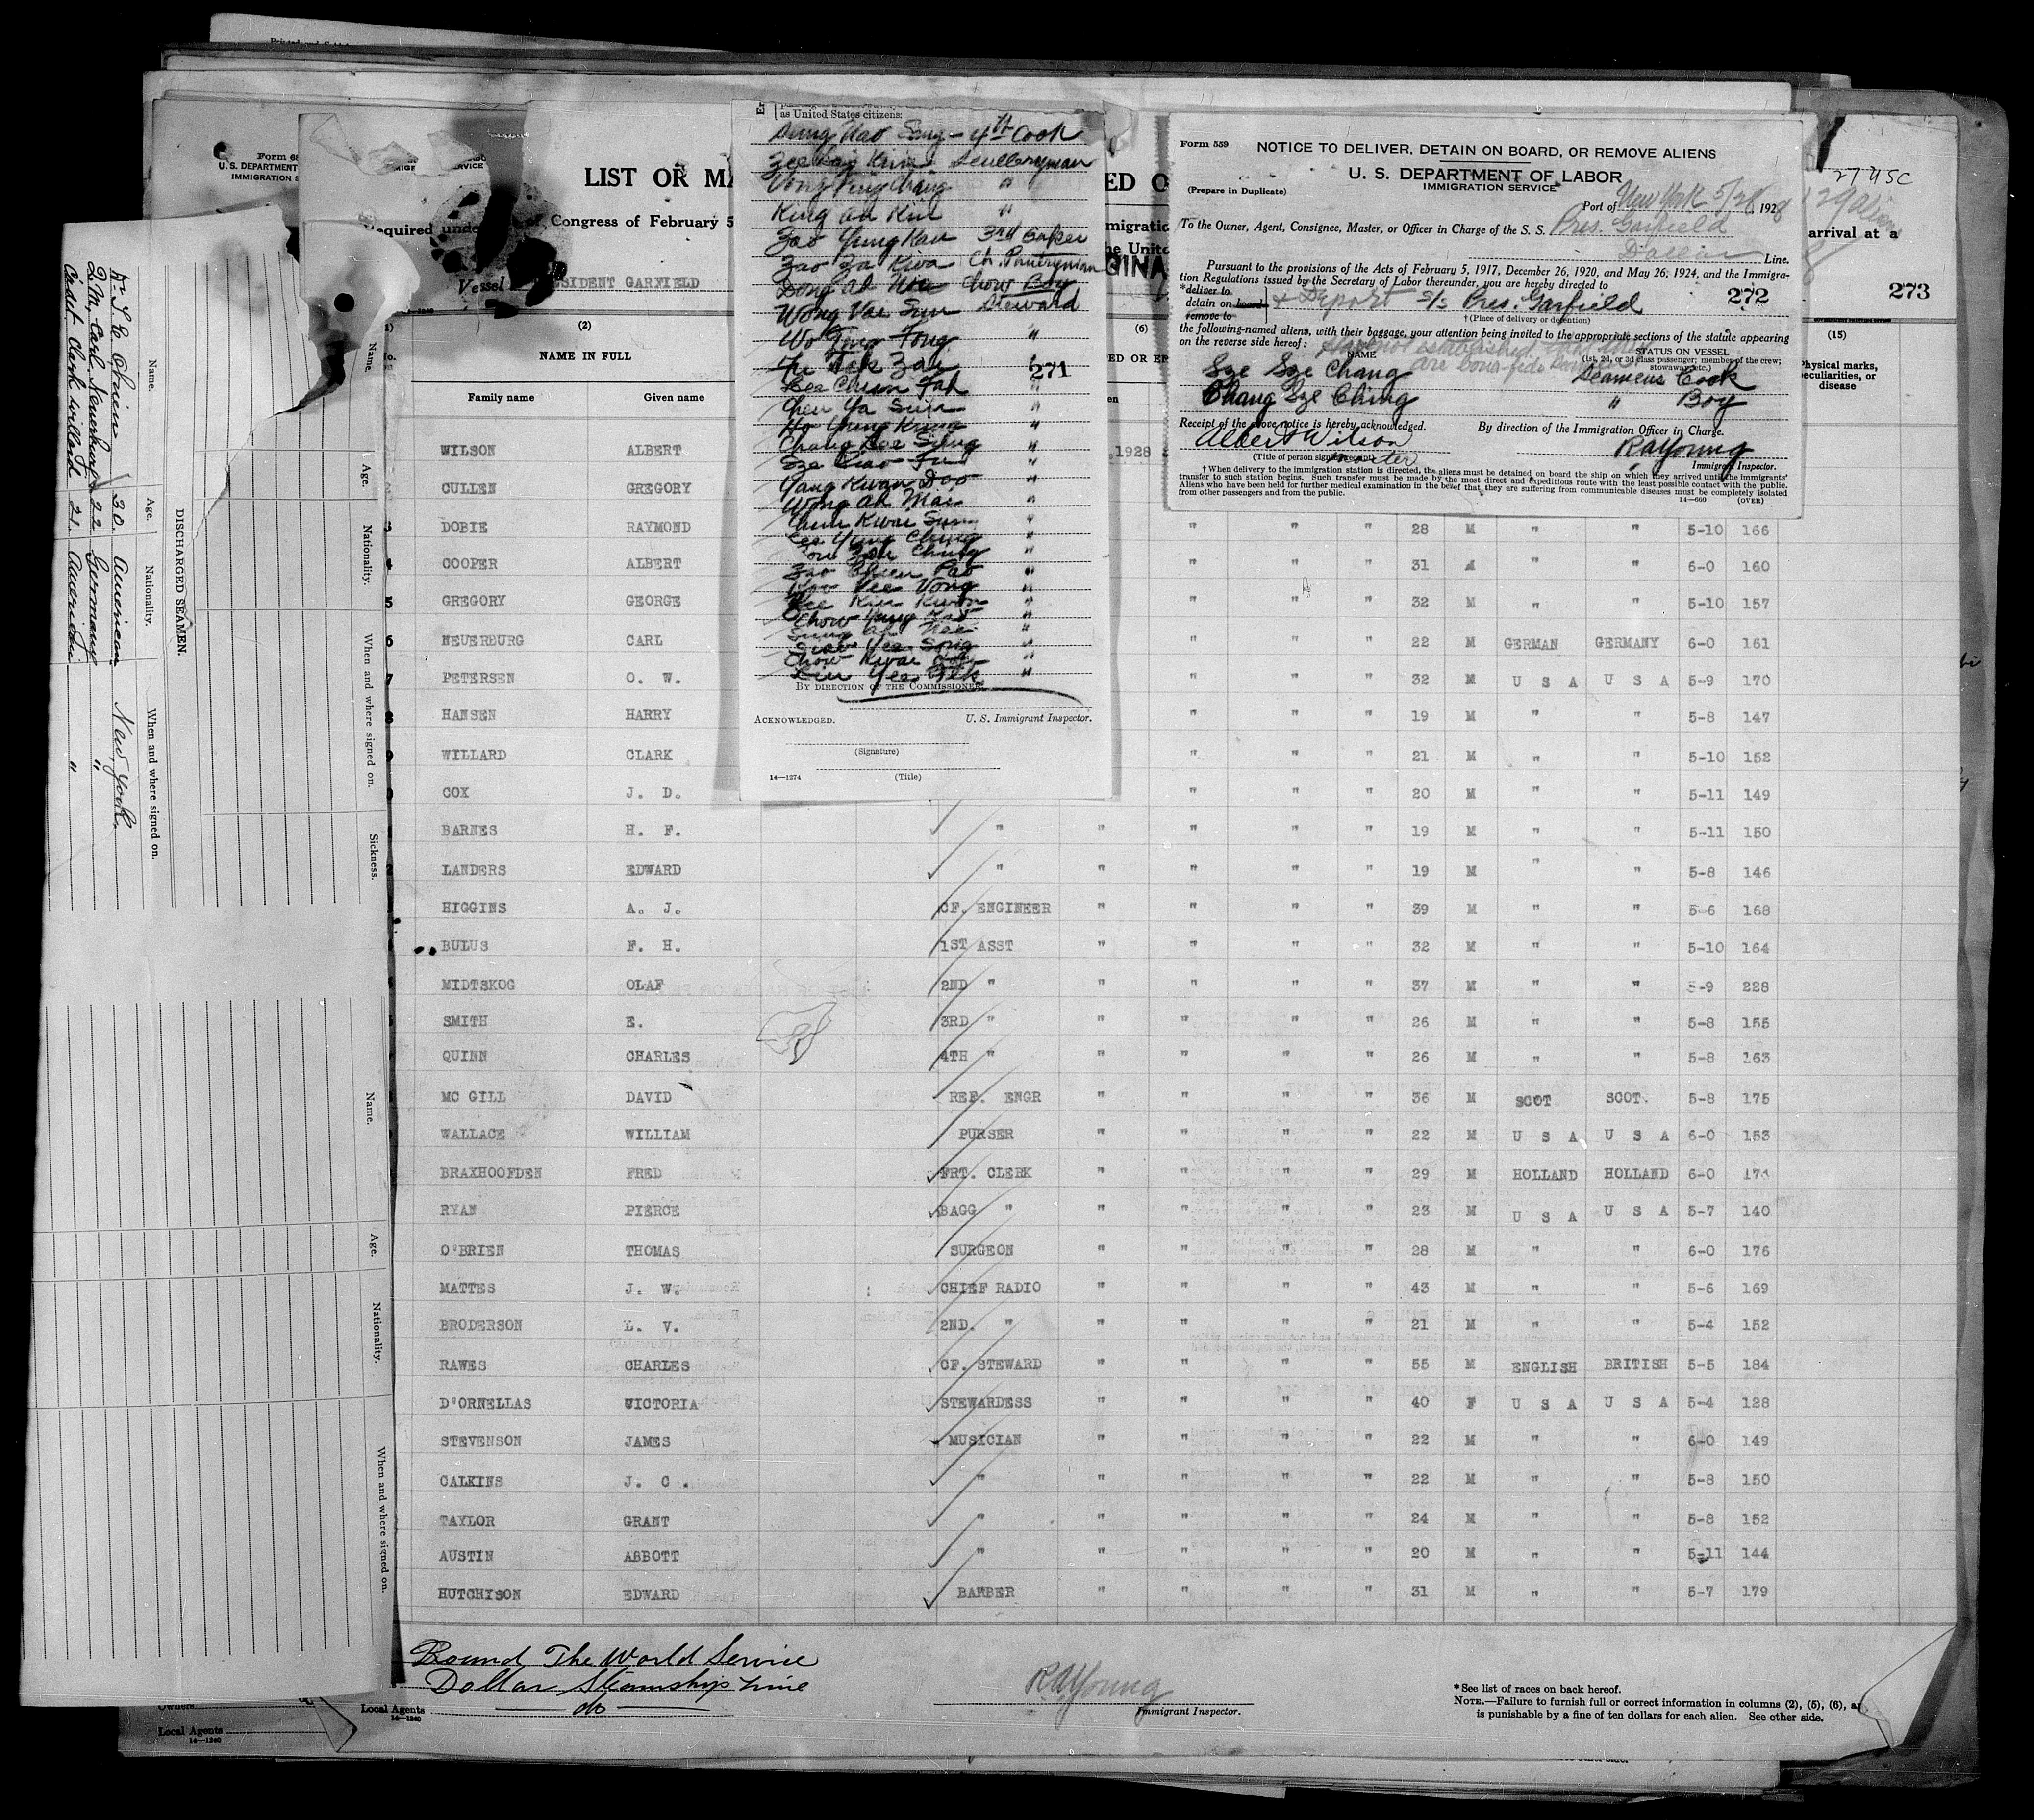 Printed and Sold
Form 68
U. S. DEPARTMENT
IMMIGRATION S
LIST OR MA
ED O
Required under
Congress of February 5
Vessel
SIDENT GARFIELD
mmigratio
he Unite
GINA
arrival at a
271
272
273
27 USC
129 aliens
(2)
(6)
(15)
NAME IN FULL
Family name
Given name
ED OR EM
Physical marks,
peculiarities, or
disease
,1928
WILSON ALBERT
CULLEN GREGORY
3 DOBIE RAYMOND " " " " 28 M " " 5-10 166
4 COOPER ALBERT " " " 31 M " " 6-0 160
5 GREGORY GEORGE " " " 32 M " " 5-10 157
6 NEUERBURG CARL " " " 22 M GERMAN GERMANY 6-0 161
7 PETERSEN O. W. " " " 32 M U S A U S A 5-9 170
8 HANSEN HARRY " " " 19 M " " 5-8 147
9 WILLARD CLARK " " " 21 M " " 5-10 152
0 COX J. D. " " " 20 M " " 5-11 149
BARNES H. F. " " " " " 19 M " " 5-11 150
LANDERS EDWARD " " " " " 19 M " " 5-8 146
HIGGINS A. J. CF. ENGINEER " " " " 39 M " " 5-6 168
BULUS F. H. 1ST ASST " " " " 32 M " " 5-10 164
MIDTSKOG OLAF 2ND " " " " " 37 M " " 5-9 228
SMITH E. 3RD " " " " " 26 M " " 5-8 155
QUINN CHARLES 4TH " " " " " 26 M " " 5-8 163
MC GILL DAVID REF. ENGR " " " " 36 M SCOT SCOT. 5-8 175
WALLACE WILLIAM PURSER " " " " 22 M U S A U S A 6-0 153
BRAXHOOFDEN FRED FRT. CLERK " " " " 29 M HOLLAND HOLLAND 6-0 174
RYAN PIERCE BAGG " " " " " 23 M U S A U S A 5-7 140
O'BRIEN THOMAS SURGEON " " " " 28 M " " 6-0 176
MATTES J. W. CHIEF RADIO " " " " 43 M " " 5-6 169
BRODERSON L. V. 2ND. " " " " " 21 M " " 5-4 152
RAWES CHARLES CF. STEWARD " " " " 55 M ENGLISH BRITISH 5-5 184
D'ORNELLAS VICTORIA STEWARDESS " " " " 40 F U S A U S A 5-4 128
STEVENSON JAMES MUSICIAN " " " " 22 M " " 6-0 149
CALKINS J. C. " " " " " 22 M " " 5-8 150
TAYLOR GRANT " " " " " 24 M " " 5-8 152
AUSTIN ABBOTT " " " " " 20 M " " 5-11 144
HUTCHISON EDWARD BARBER " " " " 31 M " " 5-7 179
Round The World Service
Dollar Steamship Line
Local Agents — do —
14—1240
RA Young
Immigrant Inspector.
* See list of races on back hereof.
NOTE.—Failure to furnish full or correct information in columns (2), (5), (6), a
is punishable by a fine of ten dollars for each alien. See other side.
Owners
Local Agents
14—1240
as United States citizens:
Sung Hao Sang - 4th Cook
Zee Kai Kim Sculleryman
Vong Ping Ching "
King Ah Kiu "
Zao Yung Kan 3rd Baker
Zao Za Kwa Ch. Pantryman
Dong Ah Nee Chow Boy
Wong Vai Sun Steward
Wo Tong Fong "
Fu Tek Zai "
Lee Chun Fah "
Chen Ya Suin "
Ho Yung Kring "
Chang Kee Sung "
Sze Siao Fu "
Yang Kwan Doo "
Wong Ah Mai "
Chun Kwai Sun "
Lee Yung Ching "
Tou Zou Chung "
Zao Chuen Pao "
Koo Vee Vong "
Kee Kiu Kwon "
Chow Yung Kao "
Sung Ah Nee "
Siao Yee Song "
Chow Kwai "
Liu Yee Tek "
BY DIRECTION OF THE COMMISSIONER:
ACKNOWLEDGED.
U. S. Immigrant Inspector.
(Signature)
(Title)
14—1274
Form 559
NOTICE TO DELIVER, DETAIN ON BOARD, OR REMOVE ALIENS
U. S. DEPARTMENT OF LABOR
IMMIGRATION SERVICE
(Prepare in Duplicate)
Port of New York 5/28, 1928
To the Owner, Agent, Consignee, Master, or Officer in Charge of the S. S. Pres. Garfield
Dollar Line.
Pursuant to the provisions of the Acts of February 5, 1917, December 26, 1920, and May 26, 1924, and the Immigra-
tion Regulations issued by the Secretary of Labor thereunder, you are hereby directed to
*deliver to
detain on board
remove to
& Deport S/S Pres. Garfield
† (Place of delivery or detention)
the following-named aliens, with their baggage, your attention being invited to the appropriate sections of the statute appearing
on the reverse side hereof:
have not established that they
are bona-fide seamen
NAME
STATUS ON VESSEL
(1st, 2d, or 3d class passenger; member of the crew;
stowaway, etc.)
Sze Sze Chang Seamens Cook
Chang Sze Ching " Boy
Receipt of the above notice is hereby acknowledged.
By direction of the Immigration Officer in Charge.
Albert Wilson
master
(Title of person signing receipt)
RA Young
Immigrant Inspector.
† When delivery to the immigration station is directed, the aliens must be detained on board the ship on which they arrived until the immigrants'
transfer to such station begins. Such transfer must be made by the most direct and expeditious route with the least possible contact with the public.
Aliens who have been held for further medical examination in the belief that they are suffering from communicable diseases must be completely isolated
from other passengers and from the public.
14—660
(OVER)
DISCHARGED SEAMEN.
Name. Age. Nationality. When and where signed on.
Dr. T. E. O'brien 30. American New York.
Q.M. Carl Neuerburg 22 Germany "
Cadet Clark Willard 21. American "
Name. Age. Nationality. When and where signed on. Sickness.
Name. Age. Nationality. When and where signed on.